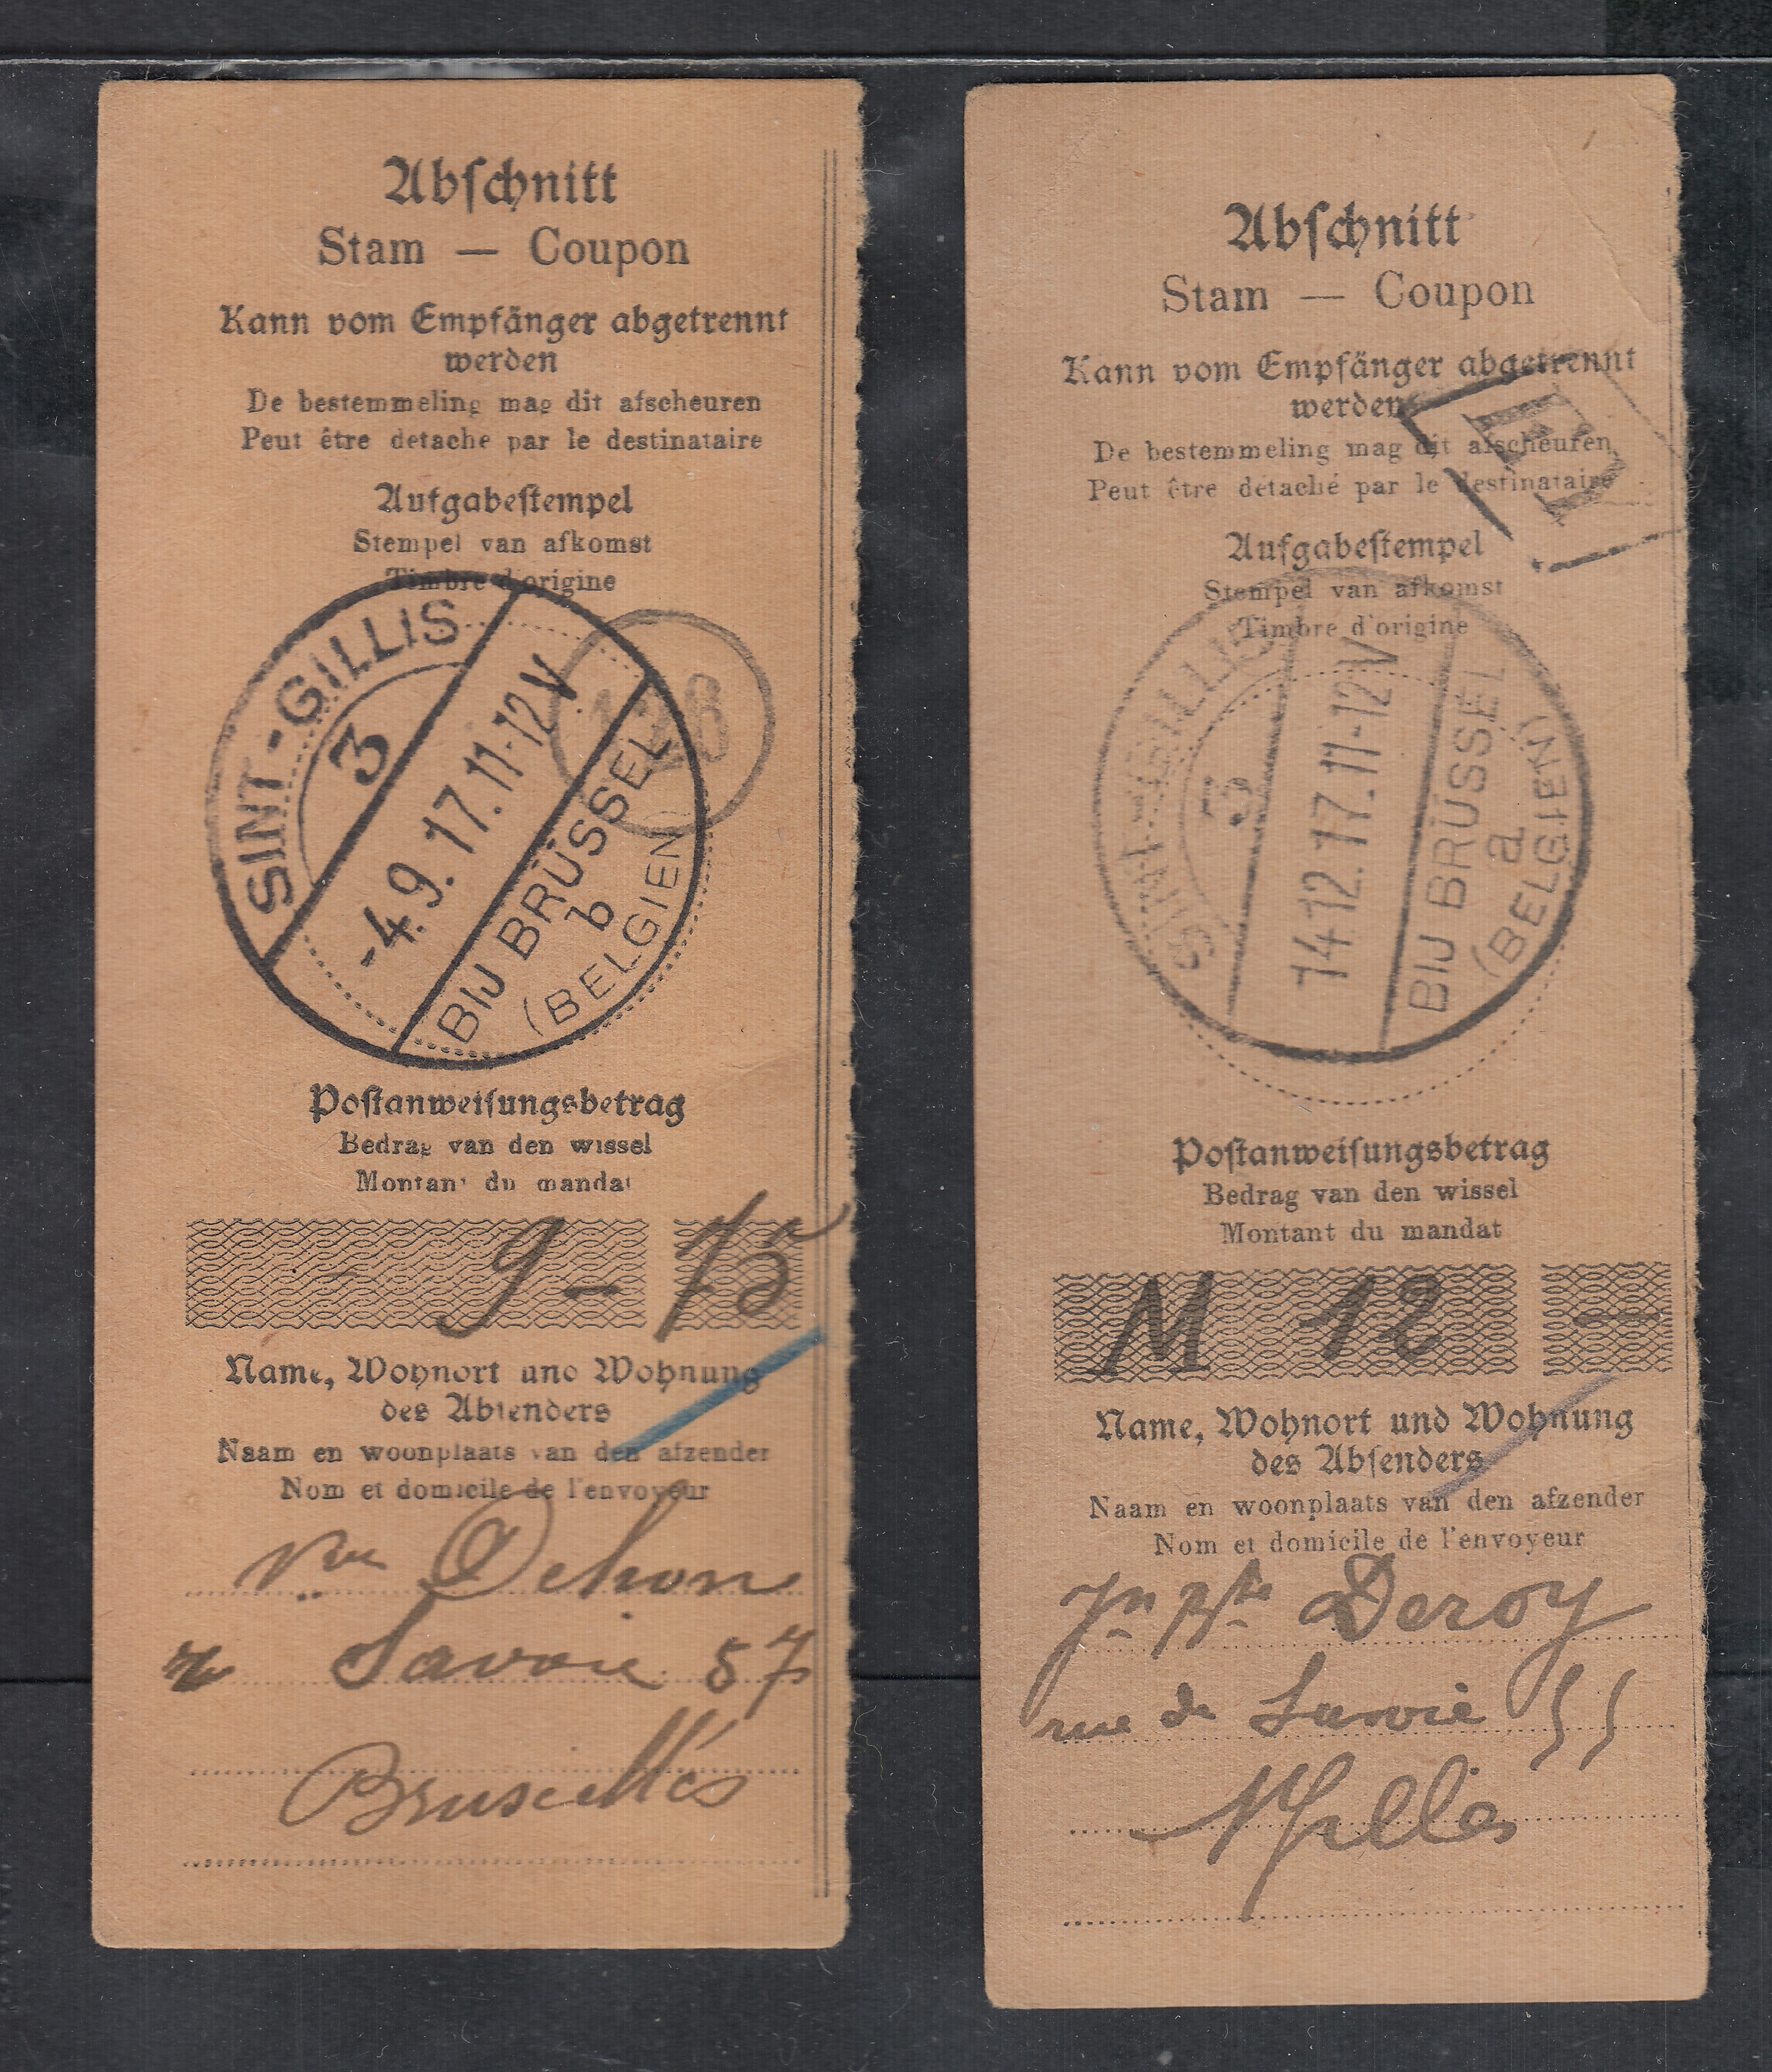 Abschnitt
Stam — Coupon
Kann vom Empfänger abgetrennt
werden
De bestemmeling mag dit afscheuren
Peut être detache par le destinataire
Aufgabestempel
Stempel van afkomst
Timbre d'origine
SINT-GILLIS
3
-4.9.17.11-12V
BIJ BRÜSSEL
b
(BELGIEN)
Postanweisungsbetrag
Bedrag van den wissel
Montant du mandat
9 - 75
Name, Wohnort und Wohnung
des Absenders
Naam en woonplaats van den afzender
Nom et domicile de l'envoyeur
Vve Dehon
r Savoie 57
Bruxelles
Abschnitt
Stam — Coupon
Kann vom Empfänger abgetrennt
werden
De bestemmeling mag dit afscheuren
Peut être détaché par le destinataire
Aufgabestempel
Stempel van afkomst
Timbre d'origine
SINT-GILLIS
3
14.12.17.11-12V
BIJ BRÜSSEL
a
(BELGIEN)
Postanweisungsbetrag
Bedrag van den wissel
Montant du mandat
M 12 —
Name, Wohnort und Wohnung
des Absenders
Naam en woonplaats van den afzender
Nom et domicile de l'envoyeur
Jn Bte Deroy
rue de Savoie 55